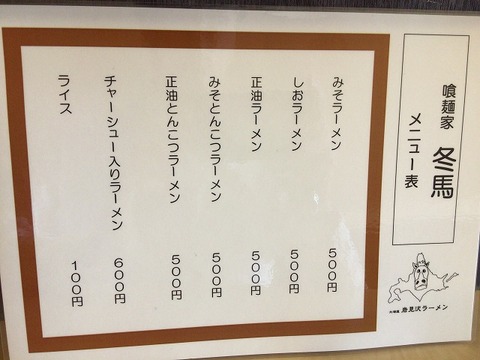 喰麺家 冬馬
メニュー表
みそラーメン 500円
しおラーメン 500円
正油ラーメン 500円
みそとんこつラーメン 500円
正油とんこつラーメン 500円
チャーシュー入りラーメン 600円
ライス 100円
岩見沢ラーメン